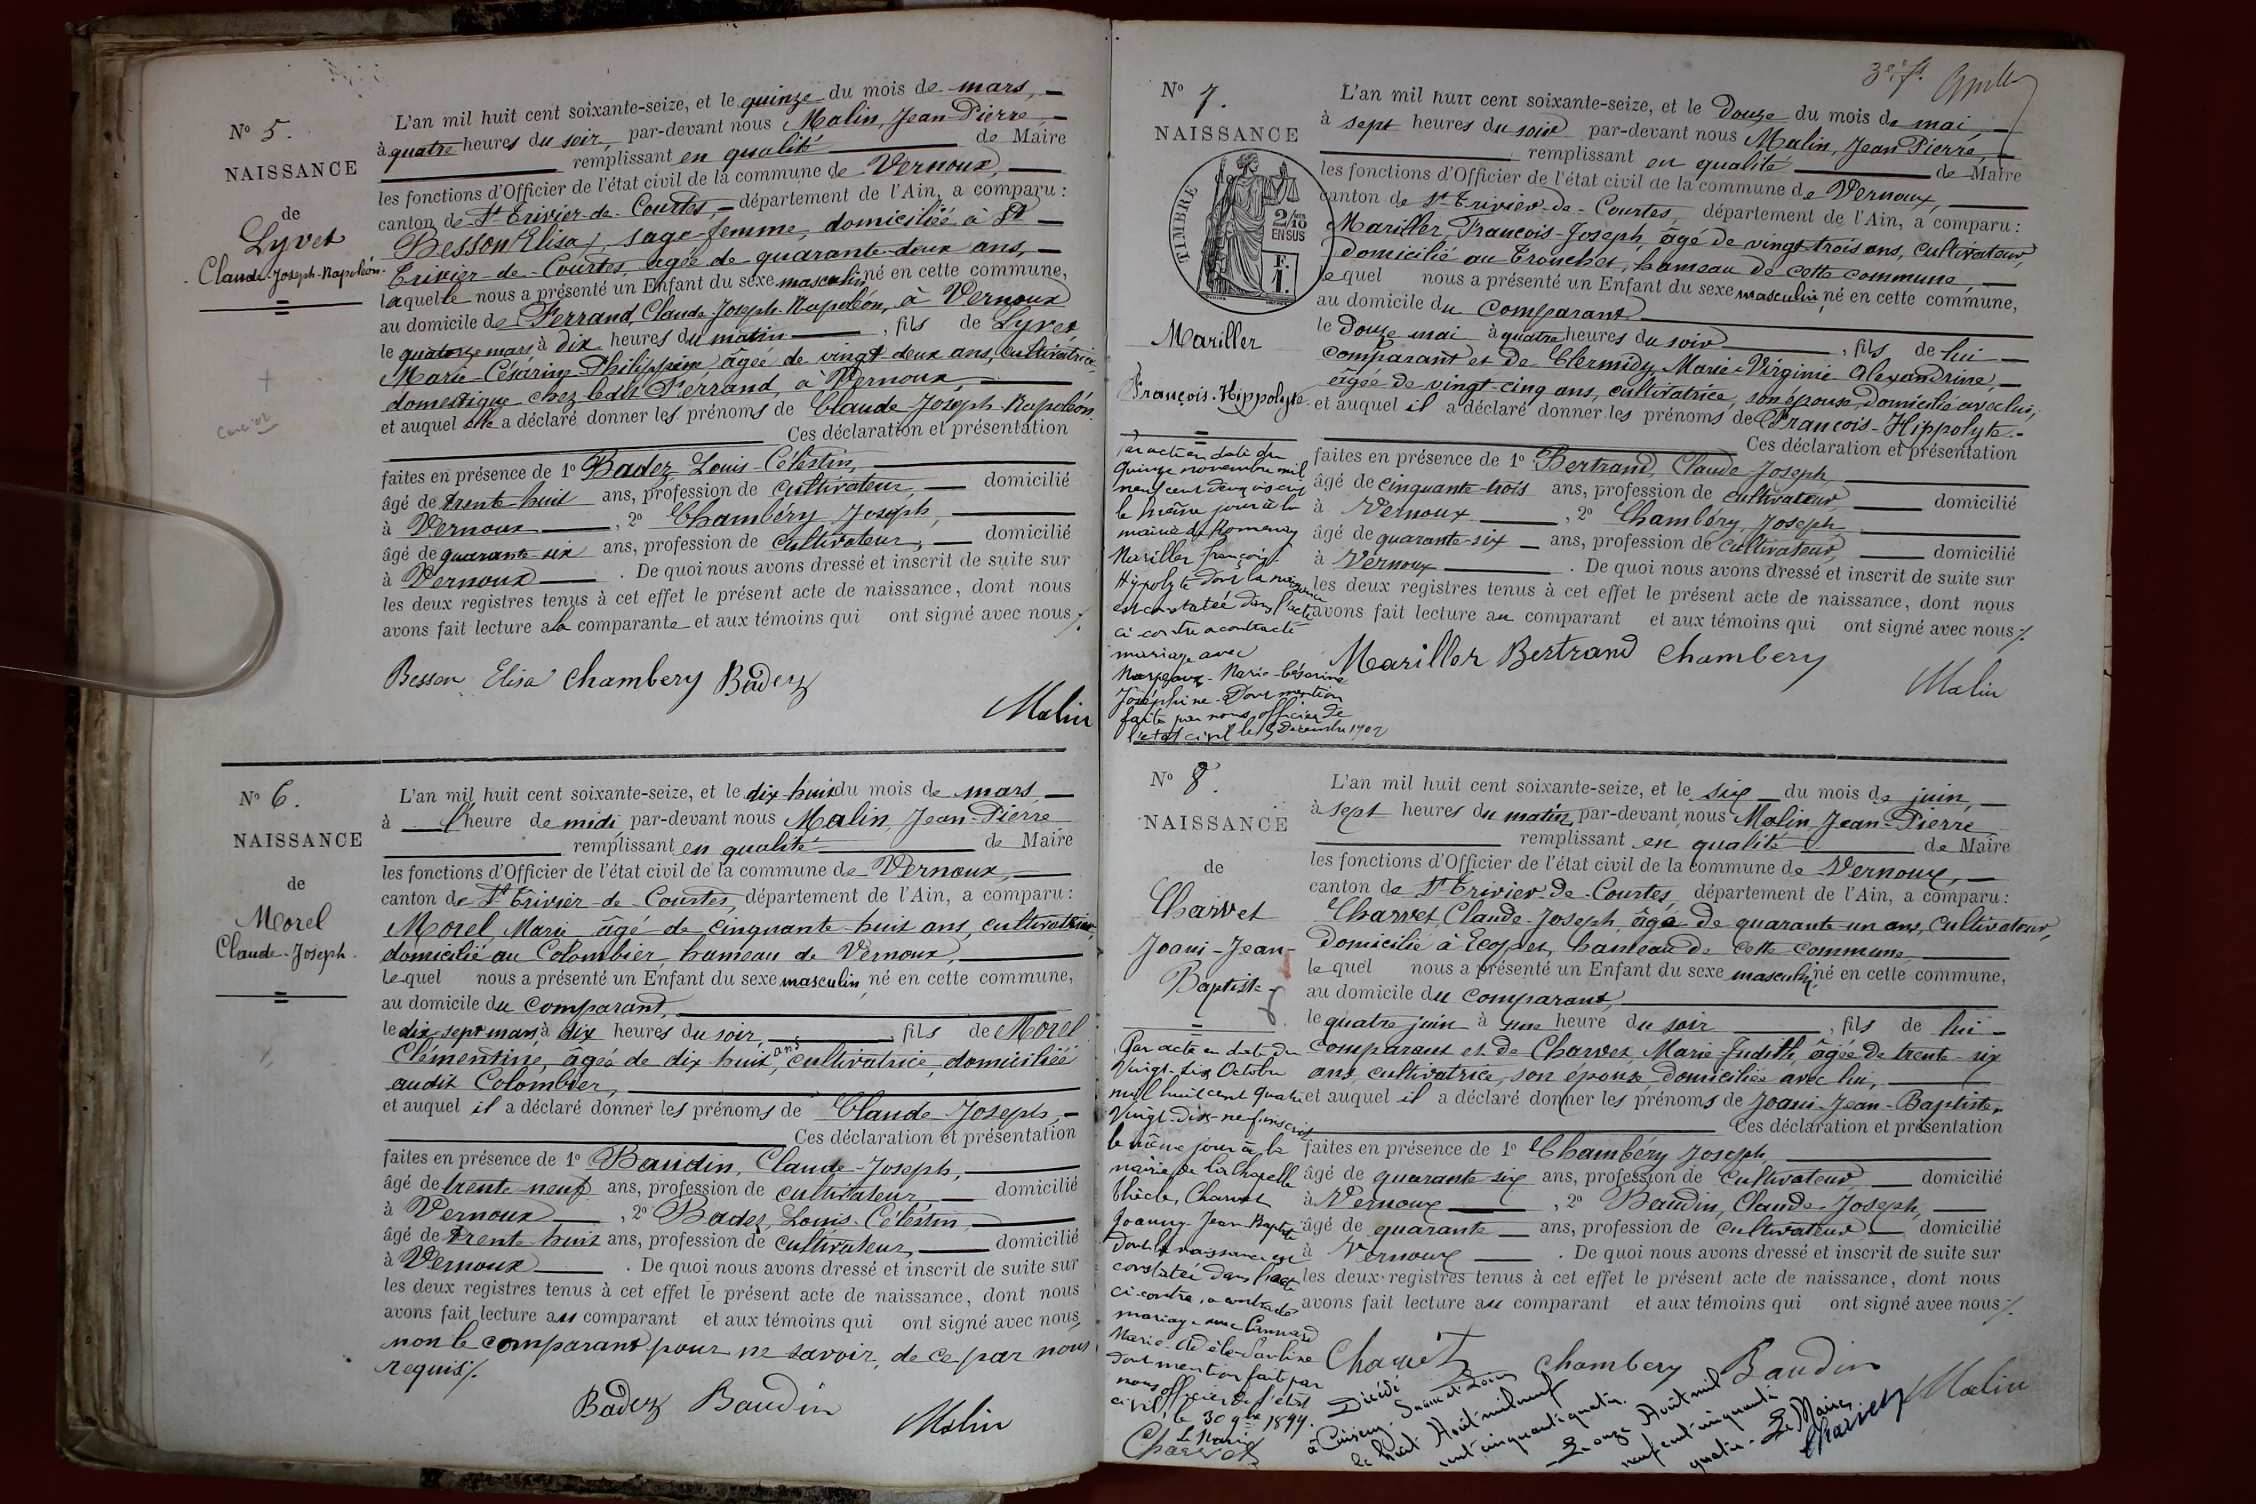 N° 5.
NAISSANCE
de
Lyvet
Claude-Joseph-Napoléon.
L'an mil huit cent soixante-seize, et le quinze du mois de mars,
à quatre heures du soir, par-devant nous Malin, Jean-Pierre
remplissant en qualité de Maire
les fonctions d'Officier de l'état civil de la commune de Vernoux,
canton de St Trivier-de-Courtes, département de l'Ain, a comparu :
Besson Elisa, sage-femme, domiciliée à St
Trivier-de-Courtes, agée de quarante-deux ans,
laquelle nous a présenté un Enfant du sexe masculin né en cette commune,
au domicile de Ferrand, Claude Joseph-Napoléon, à Vernoux
le quatorze mars, à dix heures du matin, fils de Lyvet
Marie-Césarine-Philippine, âgée de vingt-deux ans, cultivatrice,
domestique chez ledit Ferrand, à Vernoux,
et auquel elle a déclaré donner les prénoms de Claude-Joseph-Napoléon
Ces déclaration et présentation
faites en présence de 1° Badez Louis-Célestin,
âgé de trente-huit ans, profession de cultivateur, domicilié
à Vernoux, 2° Chambéry Joseph,
âgé de quarante-six ans, profession de cultivateur, domicilié
à Vernoux. De quoi nous avons dressé et inscrit de suite sur
les deux registres tenus à cet effet le présent acte de naissance, dont nous
avons fait lecture a la comparante et aux témoins qui ont signé avec nous
Besson Elisa Chambery Badez
Malin
N° 6.
NAISSANCE
de
Morel
Claude-Joseph.
L'an mil huit cent soixante-seize, et le dix-huit du mois de mars
à l'heure de midi, par-devant nous Malin, Jean-Pierre
remplissant en qualité de Maire
les fonctions d'Officier de l'état civil de la commune de Vernoux,
canton de St Trivier-de-Courtes, département de l'Ain, a comparu :
Morel, Marie, âgé de cinquante-huit ans,
domicilié au Colombier, hameau de Vernoux,
lequel nous a présenté un Enfant du sexe masculin, né en cette commune,
au domicile du comparant,
le dix-sept mars, à dix heures du soir, fils de Morel
Clémentine, âgée de dix-huit ans, cultivatrice, domiciliée
audit Colombier,
et auquel il a déclaré donner les prénoms de Claude-Joseph,
Ces déclaration et présentation
faites en présence de 1° Baudin, Claude-Joseph,
âgé de trente-neuf ans, profession de cultivateur, domicilié
à Vernoux, 2° Badez, Louis-Célestin,
âgé de trente-huit ans, profession de cultivateur, domicilié
à Vernoux. De quoi nous avons dressé et inscrit de suite sur
les deux registres tenus à cet effet le présent acte de naissance, dont nous
avons fait lecture au comparant et aux témoins qui ont signé avec nous,
non le comparant pour ne savoir, de ce par nous
requis.
Badez Baudin
Malin
3e f.
N° 7.
NAISSANCE
TIMBRE
2/10 EN SUS
F. 1.
Mariller
François-Hippolyte
L'an mil huit cent soixante-seize, et le Douze du mois de mai,
à sept heures du soir par-devant nous Malin, Jean Pierre,
remplissant en qualité de Maire
les fonctions d'Officier de l'état civil de la commune de Vernoux,
canton de St Trivier-de-Courtes, département de l'Ain, a comparu :
Mariller, François-Joseph, âgé de vingt-trois ans, cultivateur,
domicilié au Tronchet, hameau de cette commune,
lequel nous a présenté un Enfant du sexe masculin, né en cette commune,
au domicile du comparant
le Douze mai à quatre heures du soir, fils de lui
comparant et de Chermidy, Marie-Virginie Alexandrine,
âgée de vingt-cinq ans, cultivatrice, son épouse, domicilié avec lui,
et auquel il a déclaré donner les prénoms de François-Hippolyte.
Ces déclaration et présentation
faites en présence de 1° Bertrand, Claude-Joseph
âgé de cinquante-trois ans, profession de cultivateur, domicilié
à Vernoux, 2° Chambéry, Joseph
âgé de quarante-six ans, profession de cultivateur, domicilié
à Vernoux. De quoi nous avons dressé et inscrit de suite sur
les deux registres tenus à cet effet le présent acte de naissance, dont nous
avons fait lecture au comparant et aux témoins qui ont signé avec nous
Mariller Bertrand Chambery
Malin
Par acte en date du
quinze novembre mil
neuf cent deux inscrit
le même jour à la
mairie de Romenay
Mariller François
Hippolyte dont la naissance
est constatée dans l'acte
ci-contre a contracté
mariage avec
Marie-Césarine
Joséphine. Dont mention
faite par nous officier de
l'état civil le 5 Décembre 1902
N° 8.
NAISSANCE
de
Charvet
Joani-Jean-
Baptiste
L'an mil huit cent soixante-seize, et le six du mois de juin,
à sept heures du matin, par-devant nous Malin Jean-Pierre
remplissant en qualité de Maire
les fonctions d'Officier de l'état civil de la commune de Vernoux,
canton de St Trivier-de-Courtes, département de l'Ain, a comparu :
Charvet, Claude-Joseph, âgé de quarante-un ans, cultivateur,
domicilié à Ecopet, hameau de cette commune,
lequel nous a présenté un Enfant du sexe masculin, né en cette commune,
au domicile du comparant,
le quatre juin à une heure du soir, fils de lui
comparant et de Charvet, Marie-Judith, âgée de trente-six
ans, cultivatrice, son épouse, domiciliée avec lui,
et auquel il a déclaré donner les prénoms de Joani-Jean-Baptiste.
Ces déclaration et présentation
faites en présence de 1° Chambéry Joseph,
âgé de quarante-six ans, profession de cultivateur domicilié
à Vernoux, 2° Baudin, Claude-Joseph,
âgé de quarante ans, profession de cultivateur domicilié
à Vernoux. De quoi nous avons dressé et inscrit de suite sur
les deux registres tenus à cet effet le présent acte de naissance, dont nous
avons fait lecture au comparant et aux témoins qui ont signé avec nous
Charvet Chambery Baudin Malin
Par acte en date du
Vingt-six Octobre
mil huit cent quatre
vingt-dix-neuf inscrit
le même jour à la
mairie de la Chapelle
Thècle, Charvet
Joanny Jean Baptiste
dont la naissance est
constatée dans l'acte
ci-contre, a contracté
mariage avec Cannard
Marie-Adèle-Pauline
dont mention fait par
nous officier de l'état
civil, le 30 9bre 1899.
Le Maire
Charvet
Décédé
à Cuisery Saône et Loire
le huit Août mil neuf
cent cinquante quatre.
Le onze Août mil
neuf cent cinquante
quatre. Le Maire,
Charvet